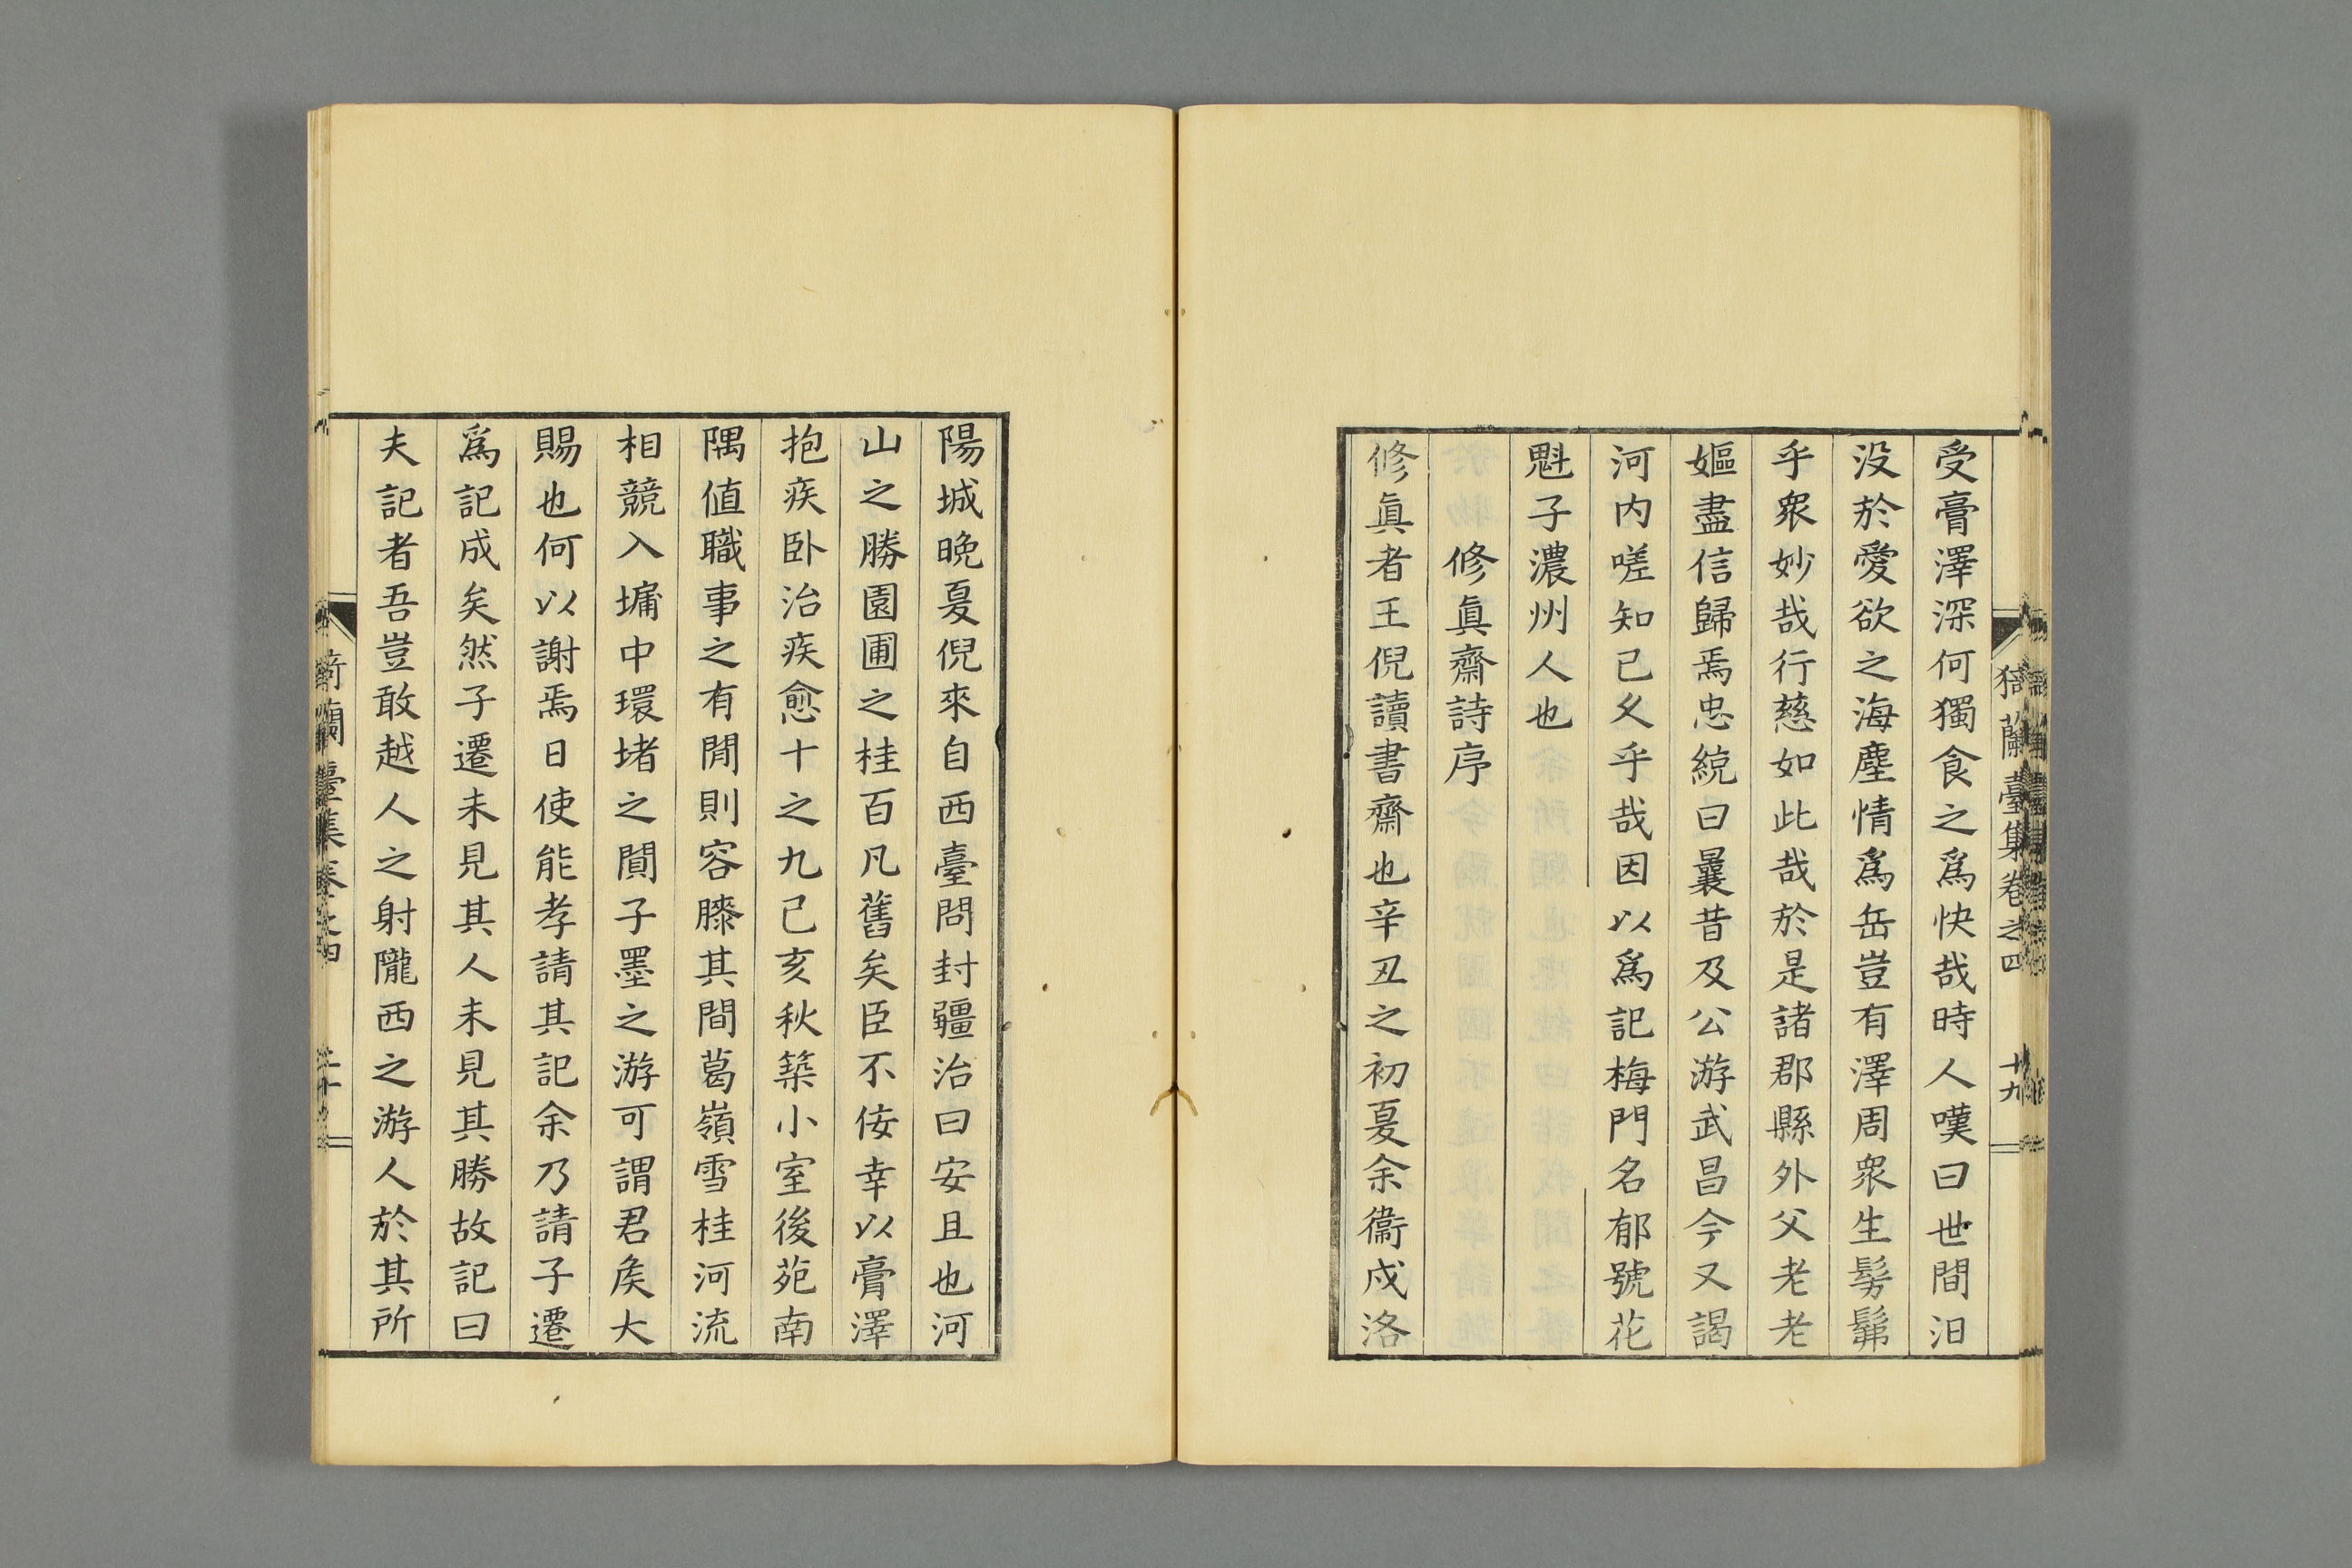 受膏澤深何獨食之爲快哉時人嘆曰世間汨
没於愛欲之海塵情爲岳豈有澤周衆生髣髴
乎衆妙哉行慈如此哉於是諸郡縣外父老老
嫗盡信歸焉忠統曰曩昔及公游武昌今又謁
河内嗟知已久乎哉因以爲記梅門名郁號花
魁子濃州人也
修眞齋詩序
修眞者王倪讀書齋也辛丑之初夏余衞戍洛
猗蘭臺集卷之四
十九
陽城晚夏倪來自西臺問封疆治曰安且也河
山之勝園圃之桂百凡舊矣臣不佞幸以膏澤
抱疾臥治疾愈十之九己亥秋築小室後苑南
隅値職事之有閒則容膝其間葛嶺雪桂河流
相競入墉中環堵之閒子墨之游可謂君矦大
賜也何以謝焉日使能孝請其記余乃請子遷
爲記成矣然子遷未見其人未見其勝故記曰
夫記者吾豈敢越人之射隴西之游人於其所
蘭臺集卷之四